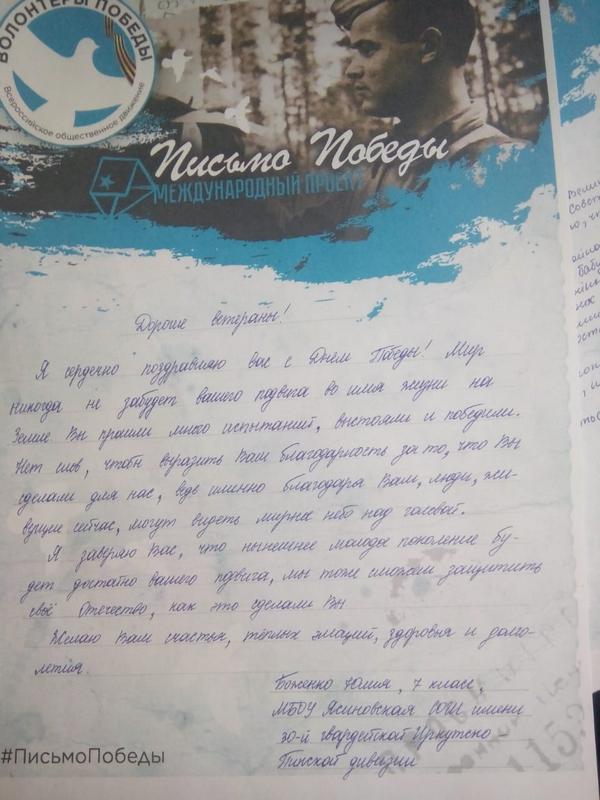 ВОЛОНТЕРЫ ПОБЕДЫ
Всероссийское общественное движение
Письмо Победы
МЕЖДУНАРОДНЫЙ ПРОЕКТ
Дорогие ветераны!
Я сердечно поздравляю вас с Днём Победы! Мир
никогда не забудет вашего подвига во имя жизни на
Земле. Вы прошли много испытаний, выстояли и победили.
Нет слов, чтобы выразить Вам благодарность за то, что Вы
сделали для нас, ведь именно благодаря Вам, люди, жи-
вущие сейчас, могут видеть мирное небо над головой.
Я заверяю Вас, что нынешнее молодое поколение бу-
дет достойно вашего подвига, мы тоже сможем защитить
своё Отечество, как это сделали Вы
Желаю Вам счастья, тёплых эмоций, здоровья и долго-
летия.
Боженко Юлия, 7 класс,
МБОУ Ясиновская СОШ имени
30-й гвардейской Иркутско
Пинской дивизии
#ПисьмоПобеды